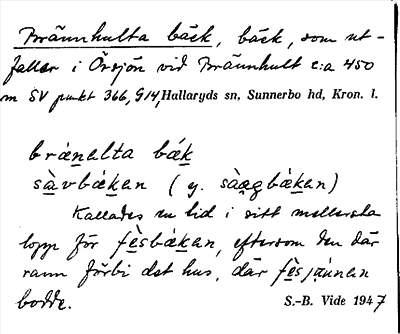 Brännhulta bäck, bäck, som ut-
faller i Örsjön vid Brännhult c:a 450
m SV punkt 366, G14, Hallaryds sn, Sunnerbo hd, Kron. l.
brǽnalta bǽk
sàvbǽkan (y. sàagbǽkan)
Kallades en tid i sitt mellersta
lopp för fèsbǽkan, eftersom den där
rann förbi det hus, där fèsjǫ́nnan
bodde.
S.-B. Vide 1947